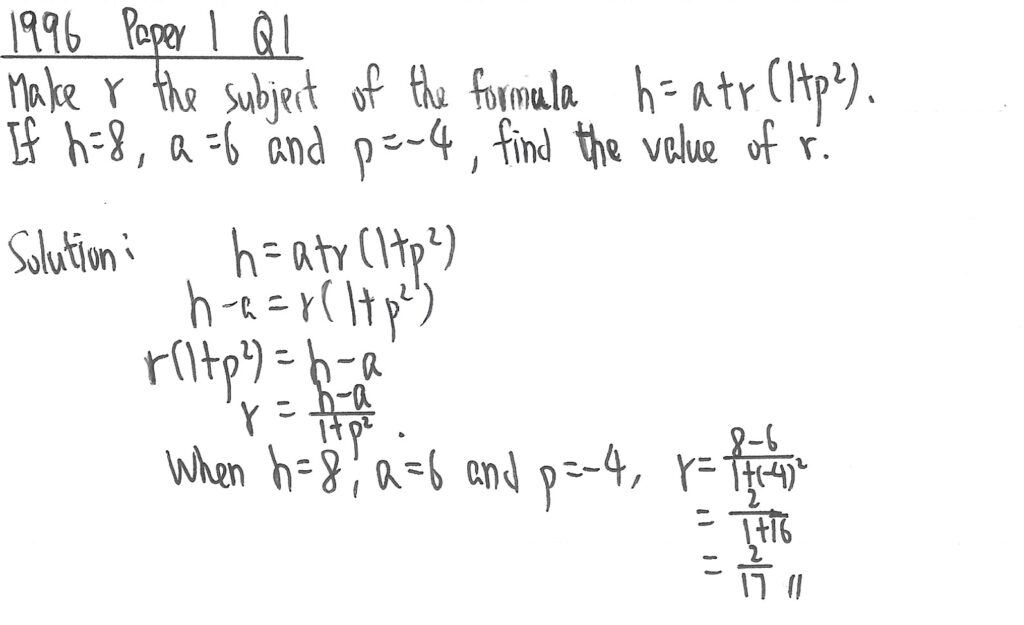 1996 Paper 1 Q1
Make r the subject of the formula h=a+r(1+p²).
If h=8, a=6 and p=-4, find the value of r.
Solution: h=a+r(1+p²)
h-a=r(1+p²)
r(1+p²)=h-a
r=\frac{h-a}{1+p²}.
When h=8, a=6 and p=-4, r=\frac{8-6}{1+(-4)²}
=\frac{2}{1+16}
=\frac{2}{17} //